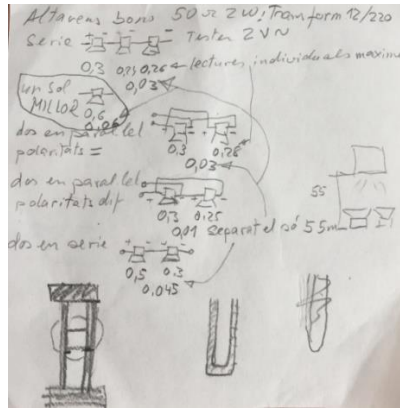 Altavens bons 50 Ω 2W! Transform 12/220
Serie Tester 2V~
0,3 0,23 0,26 lectures individuals maxime
0,03
un sol
MILLOR
0,6
0,06
dos en paral·lel
polaritats =
0,3 0,28
0,03
dos en paral·lel
polaritats dif
0,3 0,25
0,01 separat el só 55m
55
dos en serie
0,5 0,3
0,045